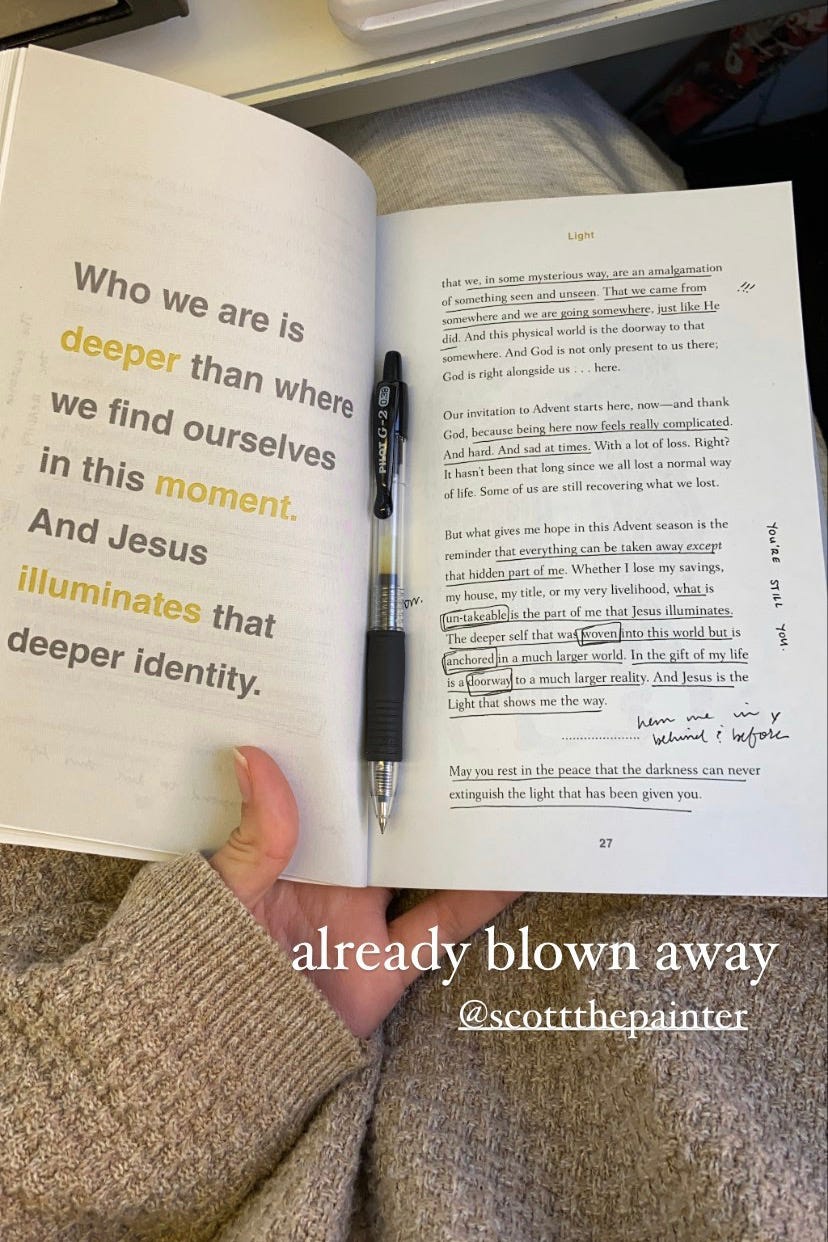 Who we are is
deeper than where
we find ourselves
in this moment.
And Jesus
illuminates that
deeper identity.
PILOT G-2 038
Light
that we, in some mysterious way, are an amalgamation
of something seen and unseen. That we came from
somewhere and we are going somewhere, just like He
did. And this physical world is the doorway to that
somewhere. And God is not only present to us there;
God is right alongside us . . . here.
!!!
Our invitation to Advent starts here, now—and thank
God, because being here now feels really complicated.
And hard. And sad at times. With a lot of loss. Right?
It hasn't been that long since we all lost a normal way
of life. Some of us are still recovering what we lost.
But what gives me hope in this Advent season is the
reminder that everything can be taken away except
that hidden part of me. Whether I lose my savings,
my house, my title, or my very livelihood, what is
un-takeable is the part of me that Jesus illuminates.
The deeper self that was woven into this world but is
anchored in a much larger world. In the gift of my life
is a doorway to a much larger reality. And Jesus is the
Light that shows me the way.
YOU'RE STILL YOU.
hem me in
behind & before
May you rest in the peace that the darkness can never
extinguish the light that has been given you.
27
already blown away
@scottthepainter